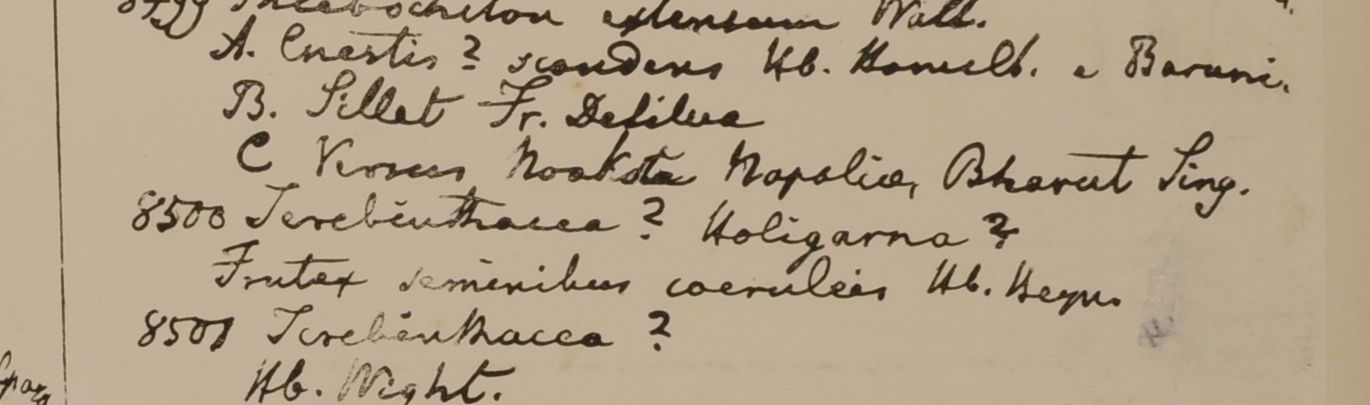 8499 Phlebochiton extensum Wall.
A. Cnestis? scandens Hb. Hamilt. e Baruni.
B. Sillet Fr. Desilva
C Versus Noakota Napalia, Bharut Sing.
8500 Terebinthacea? Holigarna?
Frutex seminibus coeruleis Hb. Heyn.
8501 Terebinthacea?
Hb. Wight.